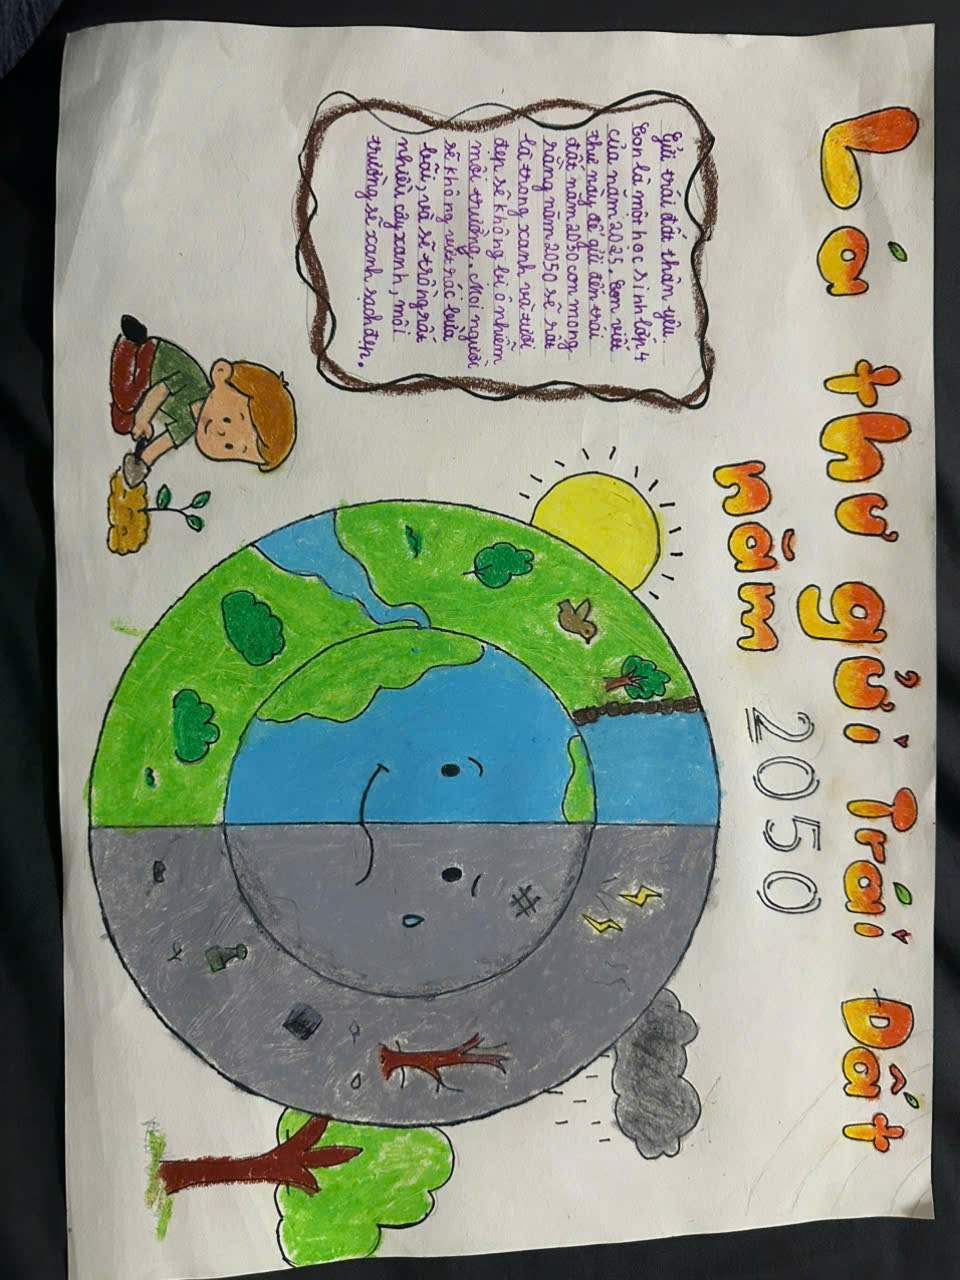 Lá thư gửi Trái Đất
năm 2050
Gửi trái đất thân yêu.
Con là một học sinh lớp 4
của năm 2025. Con viết
thư này để gửi đến trái
đất năm 2050 con mong
rằng năm 2050 sẽ rất
là trong xanh và tươi
đẹp sẽ không bị ô nhiễm
môi trường. Mọi người
sẽ không vứt rác bừa
bãi, và sẽ trồng rất
nhiều cây xanh, môi
trường sẽ xanh sạch đẹp.